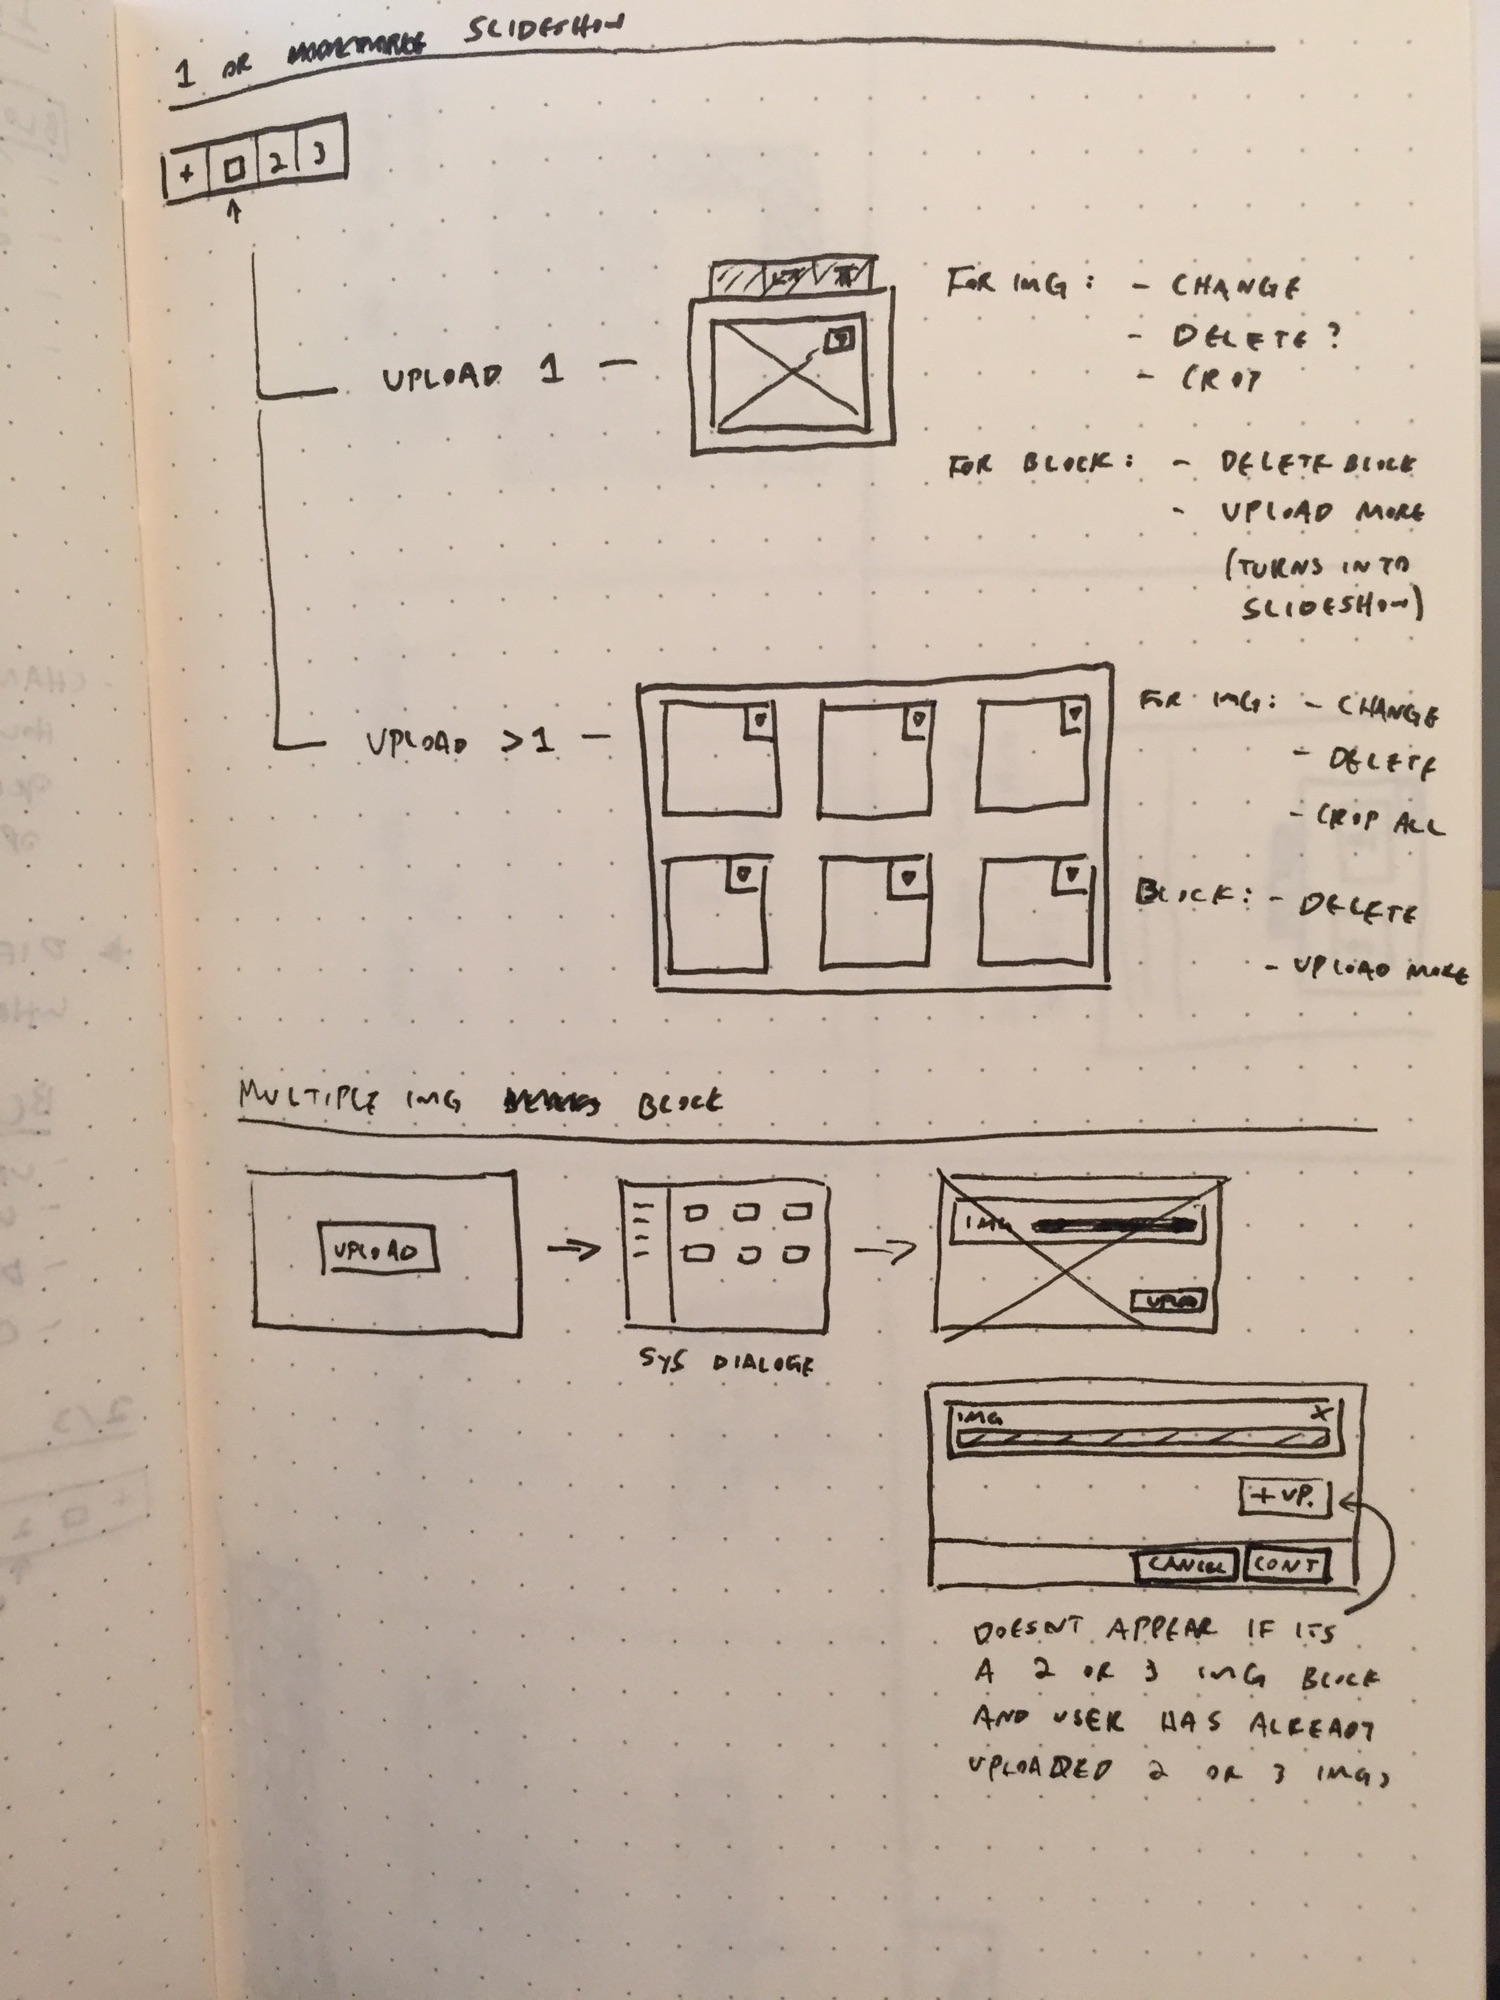 1 OR SLIDESHOW
+ 2 3
UPLOAD 1 —
FOR IMG : - CHANGE
- DELETE ?
- CROP
FOR BLOCK : - DELETE BLOCK
- UPLOAD MORE
(TURNS INTO
SLIDESHOW)
UPLOAD >1 —
FOR IMG: - CHANGE
- DELETE
- CROP ALL
BLOCK: - DELETE
- UPLOAD MORE
MULTIPLE IMG BLOCK
UPLOAD
SYS DIALOGE
IMG
UPLOD
IMG X
+ UP.
CANCEL CONT
DOESNT APPEAR IF ITS
A 2 OR 3 IMG BLOCK
AND USER HAS ALREADY
UPLOADED 2 OR 3 IMGS